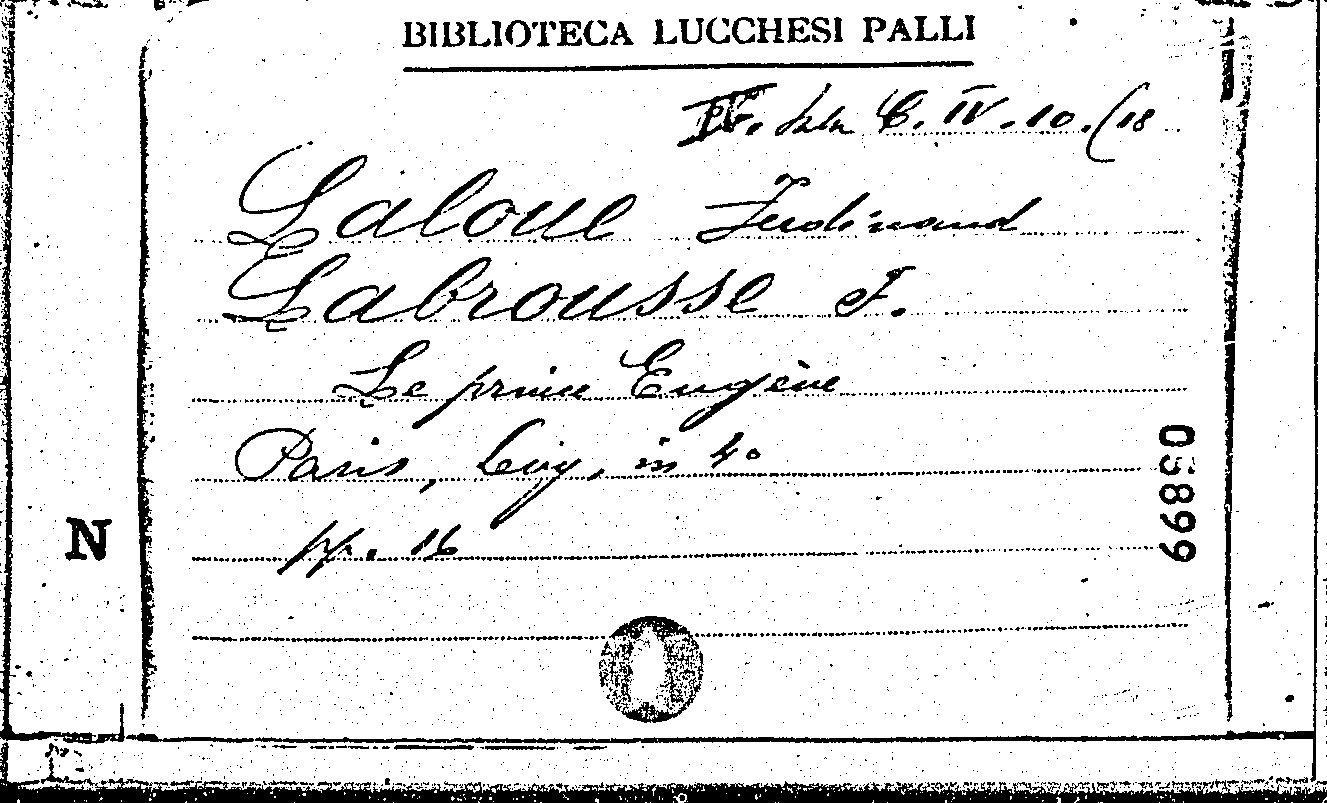 BIBLIOTECA LUCCHESI PALLI
C. IV. 10. (18
Laloue Ferdinand
Labrousse F.
Le prince Eugène
Paris, Levy, in 4°
pp. 16
N
06899